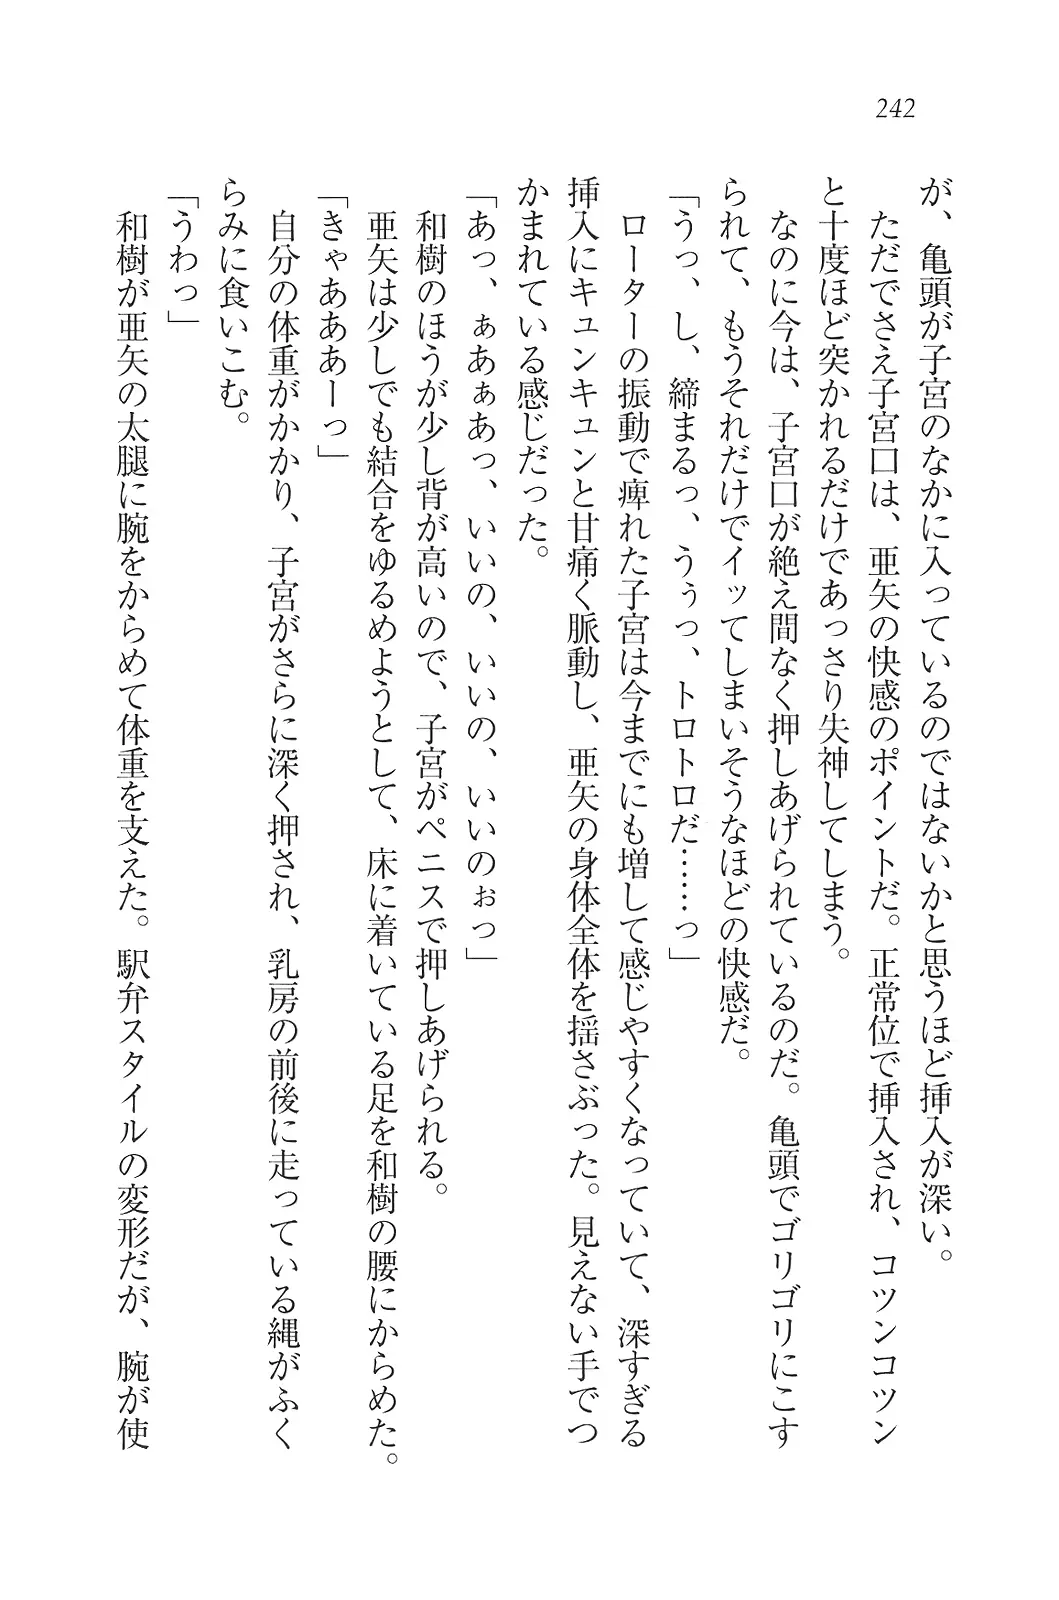 242
が、亀頭が子宮のなかに入っているのではないかと思うほど挿入が深い。
ただでさえ子宮口は、亜矢の快感のポイントだ。正常位で挿入され、コツンコツン
と十度ほど突かれるだけであっさり失神してしまう。
なのに今は、子宮口が絶え間なく押しあげられているのだ。亀頭でゴリゴリにこす
られて、もうそれだけでイッてしまいそうなほどの快感だ。
「うっ、し、締まるっ、うぅっ、トロトロだ……っ」
ローターの振動で痺れた子宮は今までにも増して感じやすくなっていて、深すぎる
挿入にキュンキュンと甘痛く脈動し、亜矢の身体全体を揺さぶった。見えない手でつ
かまれている感じだった。
「あっ、ぁあぁあっ、いいの、いいの、いいのぉっ」
和樹のほうが少し背が高いので、子宮がペニスで押しあげられる。
亜矢は少しでも結合をゆるめようとして、床に着いている足を和樹の腰にからめた。
「きゃあああーっ」
自分の体重がかかり、子宮がさらに深く押され、乳房の前後に走っている縄がふく
らみに食いこむ。
「うわっ」
和樹が亜矢の太腿に腕をからめて体重を支えた。駅弁スタイルの変形だが、腕が使